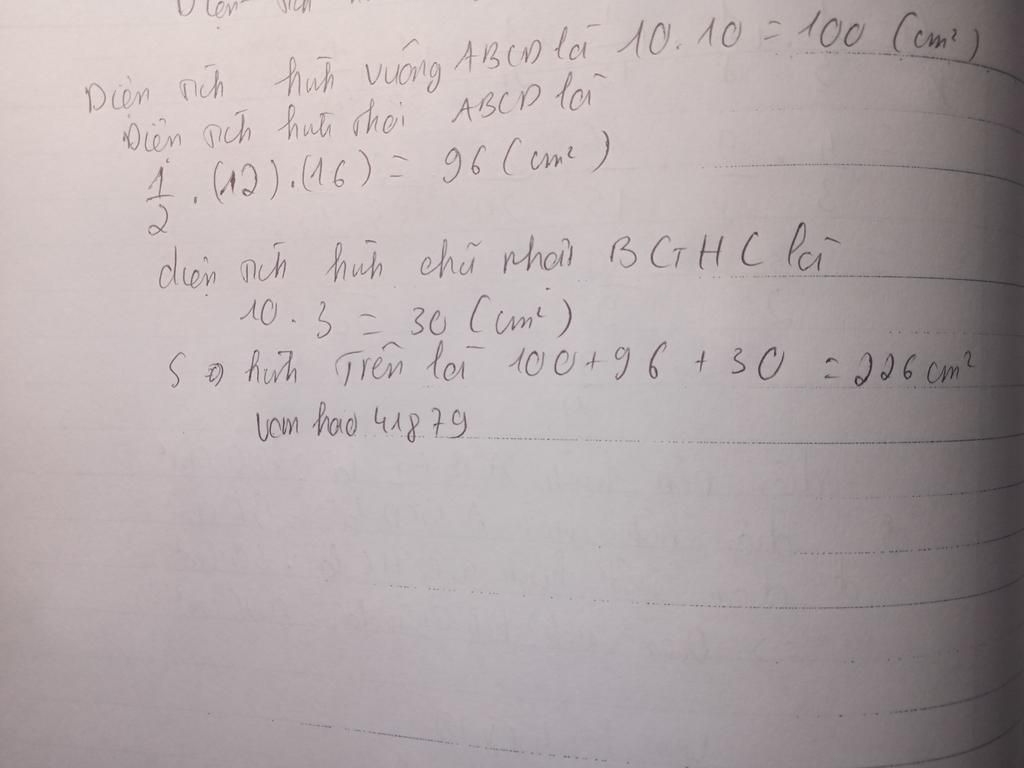 Diện tích hình
Diện tích hình vuông ABCD là 10.10 = 100 (cm²)
Diện tích hình thoi ABCD là
1/2 . (12).(16) = 96 (cm²)
diện tích hình chữ nhật BGHC là
10.3 = 30 (cm²)
S hình trên là 100 + 96 + 30 = 226 cm²
vamhao41879